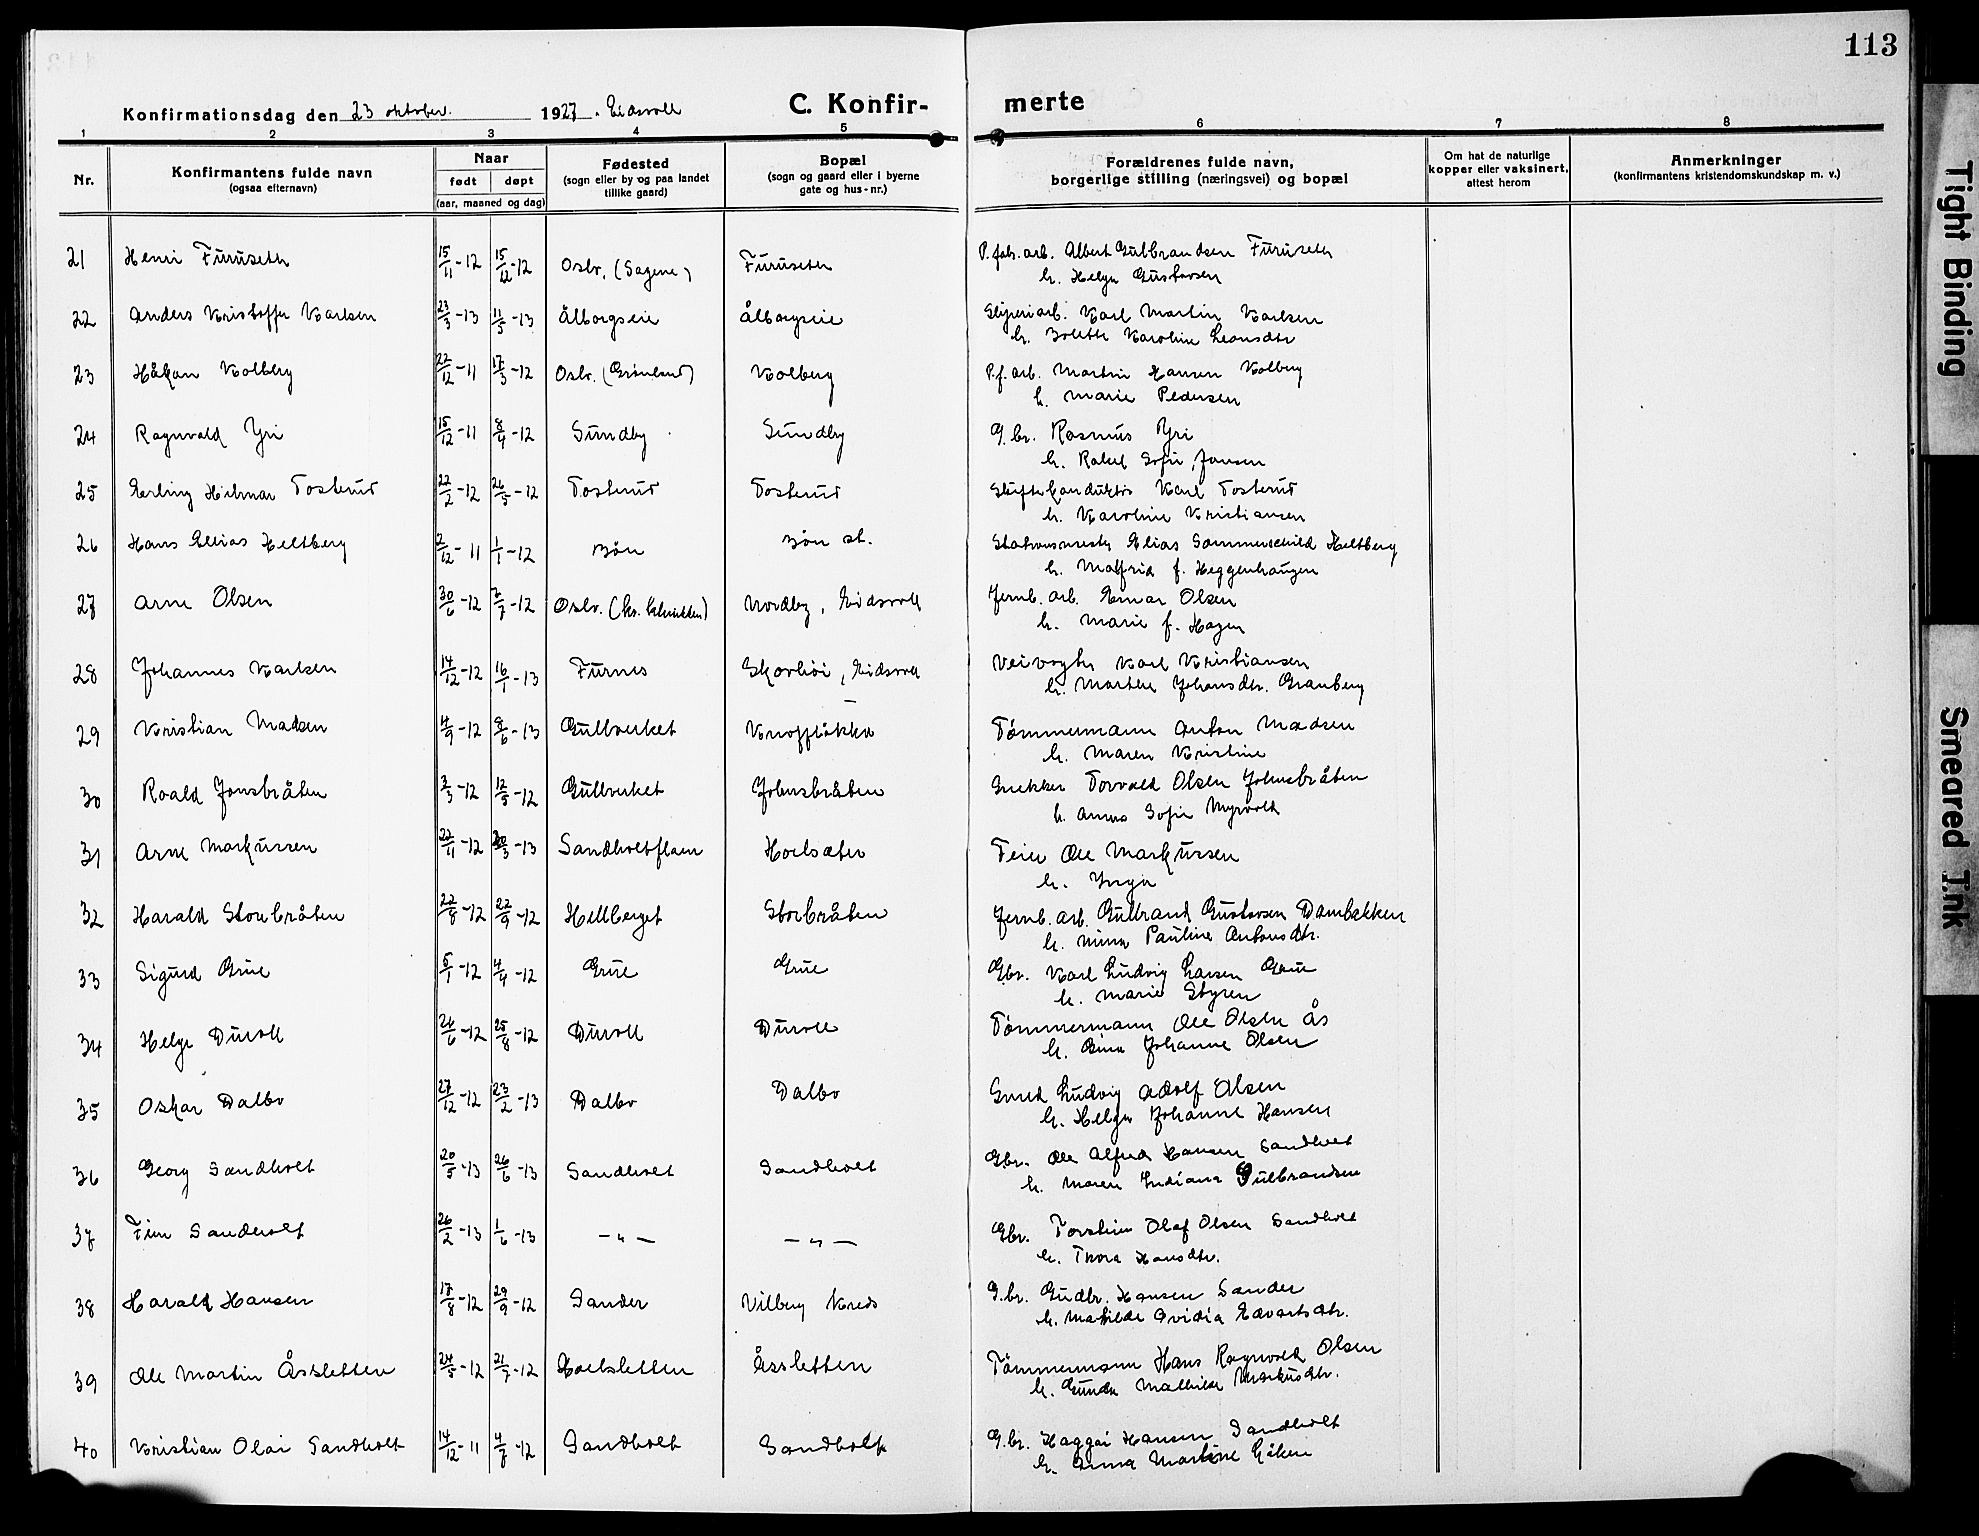 113
Konfirmationsdag den 23 oktober. 1927. Eidsvoll C. Konfir- merte
1 2 3 4 5 6 7 8
Nr. Konfirmantens fulde navn (ogsaa efternavn) Naar født døpt (aar, maaned og dag) Fødested (sogn eller by og paa landet tillike gaard) Bopæl (sogn og gaard eller i byerne gate og hus-nr.) Forældrenes fulde navn, borgerlige stilling (næringsvei) og bopæl Om hat de naturlige kopper eller vaksinert, attest herom Anmerkninger (konfirmantens kristendomskundskap m. v.)
21 Henri Furuseth 15/11-12 15/12-12 Oslo. (Sagene) Furuseth P.fabr.arb. Albert Gulbrandsen Furuseth
h. Helga Gustavsen
22 Anders Kristoffer Karlsen 23/3-13 11/5-13 Ålborgseie Ålborgseie Sliperiarb. Karl Martin Karlsen
h. Bolette Karoline Leonsdtr
23 Håkon Kolberg 22/12-11 17/3-12 Oslo. (Grønland) Kolberg P.f. arb. Martin Hansen Kolberg
h. Marie Pedersen
24 Ragnvald Yri 15/12-11 8/4-12 Sundby Sundby G.br. Rasmus Yri
h. Rakel Sofie Jansen
25 Erling Hilmar Tosterud 22/2-12 26/5-12 Tosterud Tosterud Skiftekonduktør Karl Tosterud
h. Karoline Kristiansen
26 Hans Elias Heltberg 2/12-11 1/1-12 Bøn Bøn st. Stationsmester Elias Sommerschild Heltberg
h. Malfrid f. Heggenhaugen
27 Arne Olsen 30/6-12 7/7-12 Oslo. Nordby, Eidsvoll Jernb. arb. Einar Olsen
h. Marie f. Hagen
28 Johannes Karlsen 14/12-12 16/1-13 Furnes Skovhøi, Eidsvoll Veivogter Karl Kristiansen
h. Marthe Johansdtr. Granberg
29 Kristian Madsen 4/9-12 8/6-13 Gullverket Knoffløkka Tømmermann Anton Madsen
h. Maren Kristine
30 Roald Jonsbråten 3/3-12 12/5-12 Gullverket Johnsbråten Snekker Torvald Olsen Johnsbråten
h. Anna Sofie Myrvold
31 Arne Markussen 22/11-12 30/3-13 Sandholtflaen Hoelsæter Feier Ole Markussen
h. Inga
32 Harald Storbråten 22/8-12 22/9-12 Hellberget Storbråten Jernb. arb. Gulbrand Gustavsen Dambekken
h. Mina Pauline Antonsdtr.
33 Sigurd Grue 5/1-12 4/4-12 Grue Grue Gbr. Karl Ludvig Larsen Grue
h. Marie Styren
34 Helge Duvoll 26/6-12 25/8-12 Duvoll Duvoll Tømmermann Ole Olsen Ås
h. Gina Johanne Olsen
35 Oskar Dalbo 27/12-12 23/2-13 Dalbo Dalbo Smed Ludvig Adolf Olsen
h. Helga Johanne Hansen
36 Georg Sandholt 20/5-13 26/6-13 Sandholt Sandholt Gbr. Ole Alfred Hansen Sandholt
h. Maren Indiana Gulbrandsen
37 Finn Sanderholt 26/2-13 1/6-13 -"- -"- Gbr. Torstein Olaf Olsen Sandholt
h. Thora Hansdtr.
38 Harald Hansen 17/8-12 29/9-12 Sander Vilberg Kreds G.br. Gudbr. Hansen Sander
h. Mathilde Ovidia Edvartsdtr.
39 Ole Martin Åssletten 24/5-12 21/7-12 Hoelsletten Åssletten Tømmermann Hans Ragnvald Olsen
h. Gunda Mathilde Markusdtr.
40 Kristian Olai Sandholt 14/12-11 4/7-12 Sandholt Sandholt G.br. Haggai Hansen Sandholt
h. Anna Martine
Tight Binding
Smeared Ink